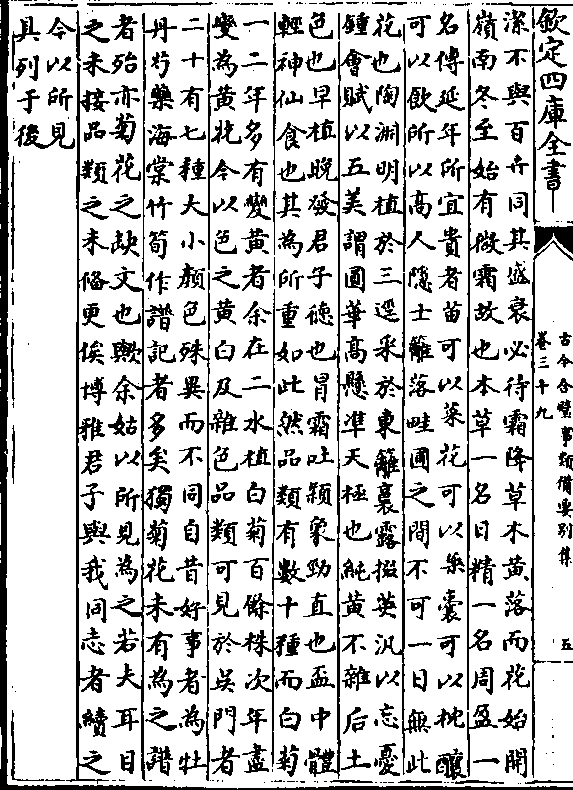 欽定四庫全書
古今合璧事類備要别集
卷三十九
五
潔不與百卉同其盛衰必待霜降草木黄落而花始開
嶺南冬至始有微霜故也本草一名日精一名周盈一
名傅延年所宜貴者苗可以菜花可以藥囊可以枕釀
可以飲所以高人隱士籬落畦圃之間不可一日無此
花也陶淵明植於三逕采於東籬裛露掇英汎以忘憂
鍾會賦以五美謂圓華高懸凖天極也純黄不雜后土
色也早植晚發君子徳也冒霜吐頴象勁直也盃中體
輕神仙食也其為所重如此然品類有數十種而白菊
一二年多有變黄者余在二水植白菊百餘株次年盡
變為黄花今以色之黄白及雜色品類可見於吳門者
二十有七種大小顔色殊異而不同自昔好事者為牡
丹芍藥海棠竹筍作譜記者多矣獨菊花未有為之譜
者殆亦菊花之缺文也歟余姑以所見為之若夫耳目
之未接品類之未備更俟博雅君子與我同志者續之
今以所見
具列于後